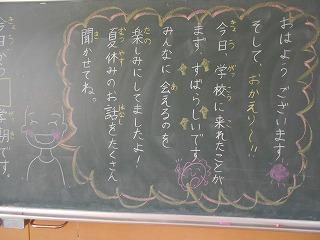 おはようございます。
そして、おかえり〜!!
今日、学校に来れたことが
ます、すばらしいです。
みんなに会えるのを
楽しみにしてましたよ!
夏休みのお話をたくさん
聞かせてね。
今日から
学期です。